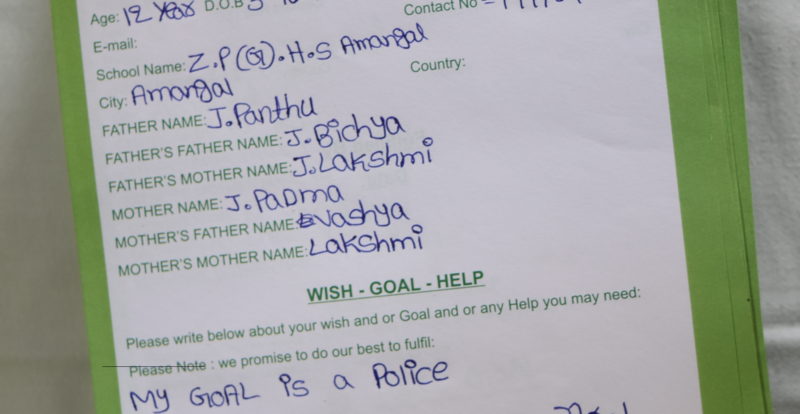 Age: 12 Year D.O.B
Contact No
E-mail:
School Name: Z.P(G).H.S Amangal
City: Amangal
Country:
FATHER NAME: J.Panthu
FATHER'S FATHER NAME: J.Bichya
FATHER'S MOTHER NAME: J.Lakshmi
MOTHER NAME: J.Padma
MOTHER'S FATHER NAME: Vashya
MOTHER'S MOTHER NAME: Lakshmi
WISH - GOAL - HELP
Please write below about your wish and or Goal and or any Help you may need:
Please Note : we promise to do our best to fulfil:
My GOAL is a Police